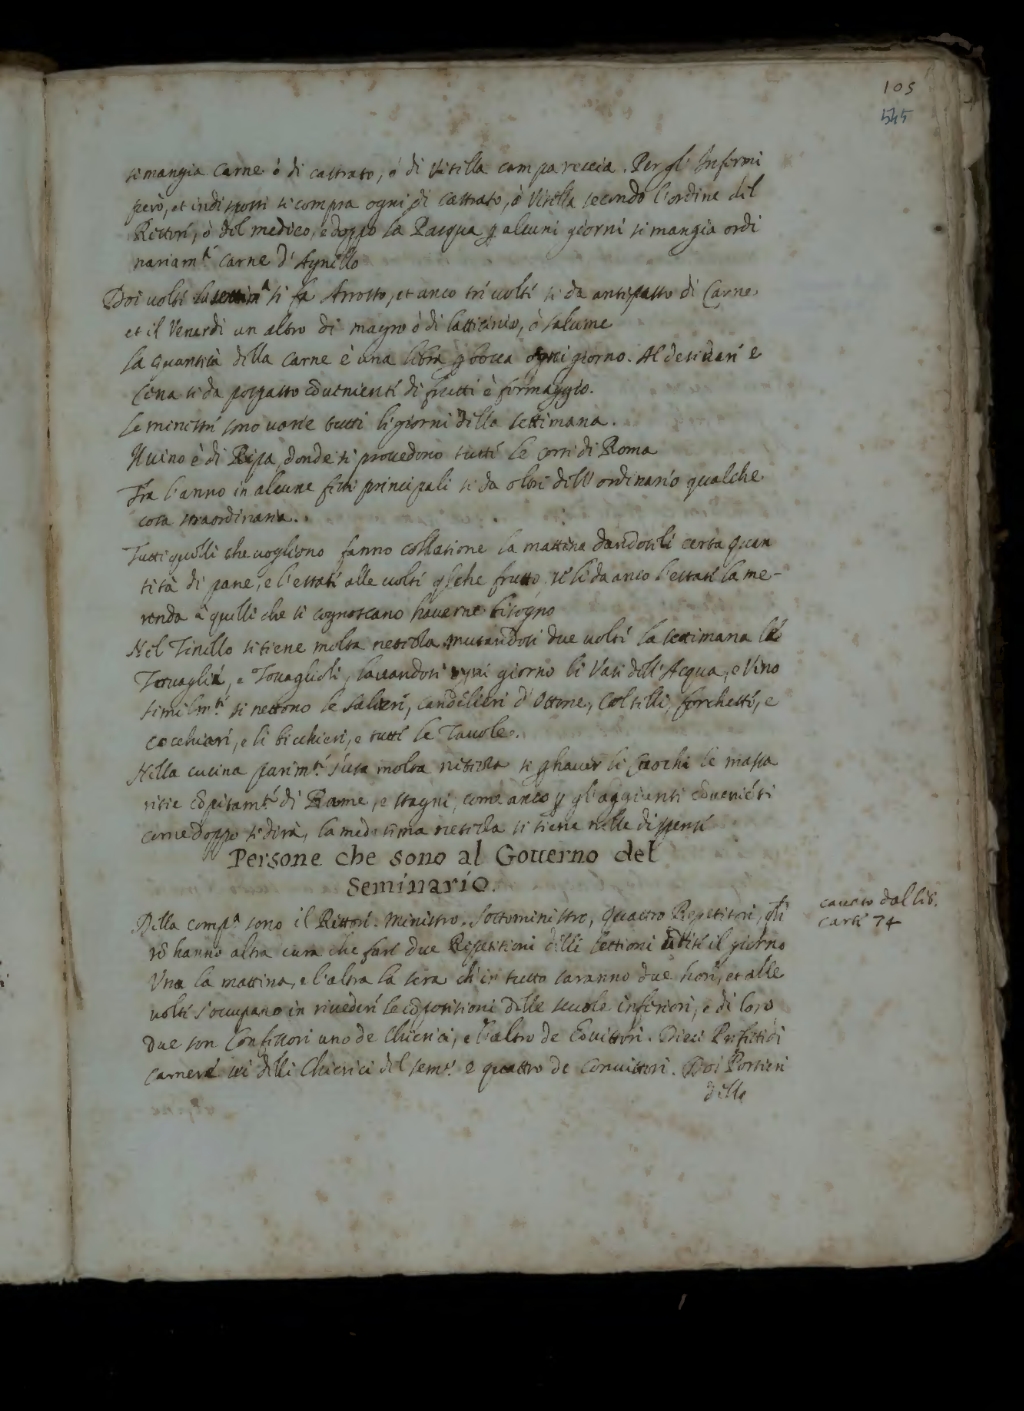 105
545
si mangia Carne ò di castrato, ò di Vitella campareccia. Per gl'Infermi
però, et indisposti si compra ogni dì Castrato, ò Vitella secondo l'ordine del
Rettore, ò del medico, e doppo la Pasqua p alcuni giorni si mangia ordi
nariam.te carne d'Agnello
Doi volte la settim.a si fa Arrosto, et anco tre volte si da antipasto di Carne
et il Venerdi un altro di magro ò di latticinio, ò salume
La quantità della carne è una libra p bocca ogni giorno. Al desinare e
Cena si da pospasto cōveniente di frutti e formaggio.
Le minestre sono varie tutti li giorni della settimana.
Il vino è di Ripa, donde si provedono tutte le corti di Roma
Fra l'anno in alcune feste principali si da oltre dell'ordinario qualche
cosa straordinaria.
Tutti quelli che vogliono fanno collatione la mattina dandoseli certa quan
tità di pane, e l'estate alle volte q̃lche frutto, se li da anco l'estate la me-
renda à quelli che si cognoscano haverne bisogno
Nel Tinello si tiene molta nettezza mutandosi due volte la settimana le
Tovaglie, e Tovaglioli, lavandosi ogni giorno li Vasi dell'Acqua, e Vino
similm.te si nettono le saliere, candellieri d'Ottone, Coltelli, forchette, e
cocchiari, e li bicchieri, e tutte le Tavole.
Nella cucina parim.te s'usa molta nettezza si p haver li Cuochi le massa
ritie cōpitam.te di Rame, e stagni, come anco p gl'aggiunti cōvenieti
come doppo si dirà, la medesima nettezza si tiene nelle dispense
Persone che sono al Governo del
Seminario.
cavato dal lib.
carte 74
Della comp.a sono il Rettore. Ministro. Sottoministro, Quattro Repetitori, q̃li
nō hanno altra cura che fare due Repetitioni delle lettioni udite il giorno
Una la mattina, e l'altra la sera ch'in tutto saranno due hore, et alle
volte s'occupano in rivedere le cōpositioni delle scuole inferiori, e di loro
due son Confessori uno de Chierici, e l'altro de Cōvittori. Dieci Prefetti di
camere sei delli Chierici del sem.o e quattro de Convittori. Doi Portieri
delle